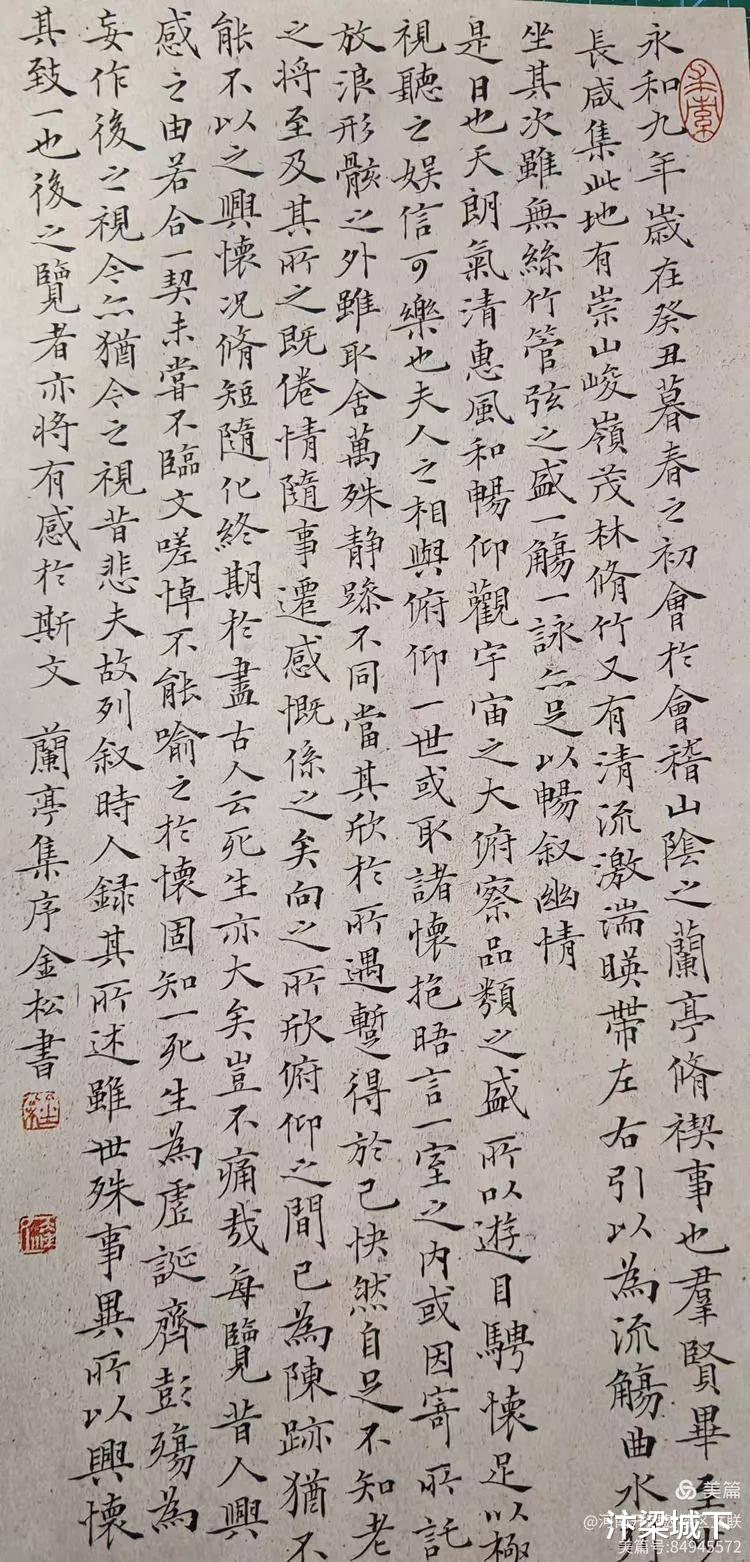 永和九年歲在癸丑暮春之初會於會稽山陰之蘭亭脩禊事也羣賢畢至
長咸集此地有崇山峻嶺茂林脩竹又有清流激湍暎帶左右引以為流觴曲水
坐其次雖無絲竹管弦之盛一觴一詠亦足以暢叙幽情
是日也天朗氣清惠風和暢仰觀宇宙之大俯察品類之盛所以遊目騁懷足以極
視聽之娛信可樂也夫人之相與俯仰一世或取諸懷抱晤言一室之内或因寄所託
放浪形骸之外雖取舍萬殊静躁不同當其欣於所遇暫得於己快然自足不知老
之將至及其所之既倦情隨事遷感慨係之矣向之所欣俯仰之間已為陳跡猶不
能不以之興懷况脩短隨化終期於盡古人云死生亦大矣豈不痛哉每覽昔人興
感之由若合一契未嘗不臨文嗟悼不能喻之於懷固知一死生為虛誕齊彭殤為
妄作後之視今亦猶今之視昔悲夫故列叙時人録其所述雖世殊事異所以興懷
其致一也後之覽者亦將有感於斯文 蘭亭集序金松書
美篇
汴梁城下
美篇号:84945572